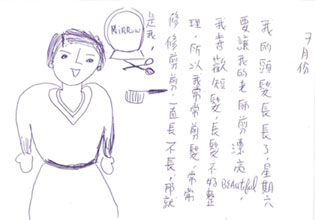 7月份
我的頭髮長長了,星期六
要讓我的老師剪漂亮,
BEAUTIFUL
我喜歡短髮,長髮不好整
理,所以我常常剪髮,常常
修修剪剪,一直長不長,那就
是我,
MIRROW